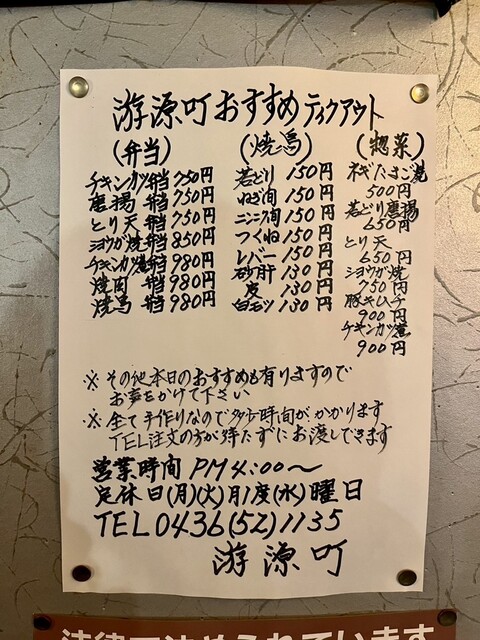 游源町おすすめテイクアウト
(弁当)
チキンカツ弁当750円
唐揚弁当750円
とり天弁当750円
ショウガ焼弁当850円
チキンカツ煮弁当980円
焼肉弁当980円
焼鳥弁当980円
(焼鳥)
若どり150円
ねぎ肉150円
ニンニク肉150円
つくね150円
レバー150円
砂肝130円
皮130円
白モツ130円
(惣菜)
ネギたまご焼
500円
若どり唐揚
650円
とり天
650円
ショウガ焼
750円
豚キムチ
900円
チキンカツ煮
900円
※その他本日のおすすめも有りますので
お声をかけて下さい
※全て手作りなので多少時間がかかります
TEL注文の方が待たずにお渡しできます
営業時間PM4:00〜
定休日(月)(火)月1度(水)曜日
TEL0436(52)1135
游源町
法律で決められています